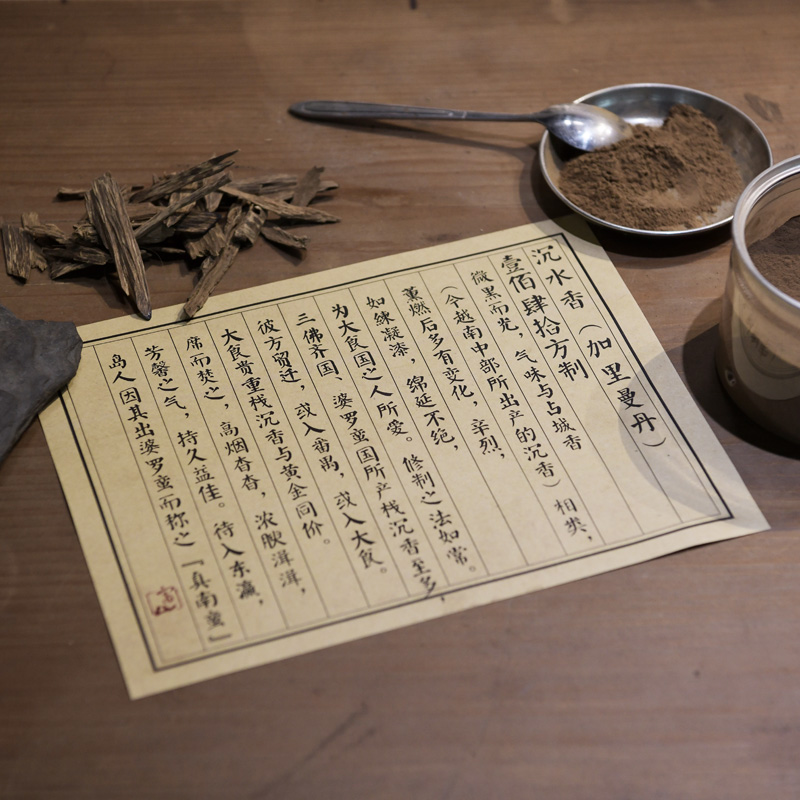 沉水香（加里曼丹）
壹佰肆拾方制
微黑而光，气味与占城香
（今越南中部所出产的沉香）相类，
薰燃后多有变化，辛烈，
如練凝漆，绵延不绝，
为大食国之人所爱。修制之法如常。
三佛齐国、婆罗蛮国所产栈沉香至多，
彼方贸迁，或入番禺，或入大食。
大食贵重栈沉香与黄金同价。
席而焚之，高烟杳杳，浓腴湒湒，
芳馨之气，持久益佳。待入东瀛，
岛人因其出婆罗蛮而称之『真南蛮』